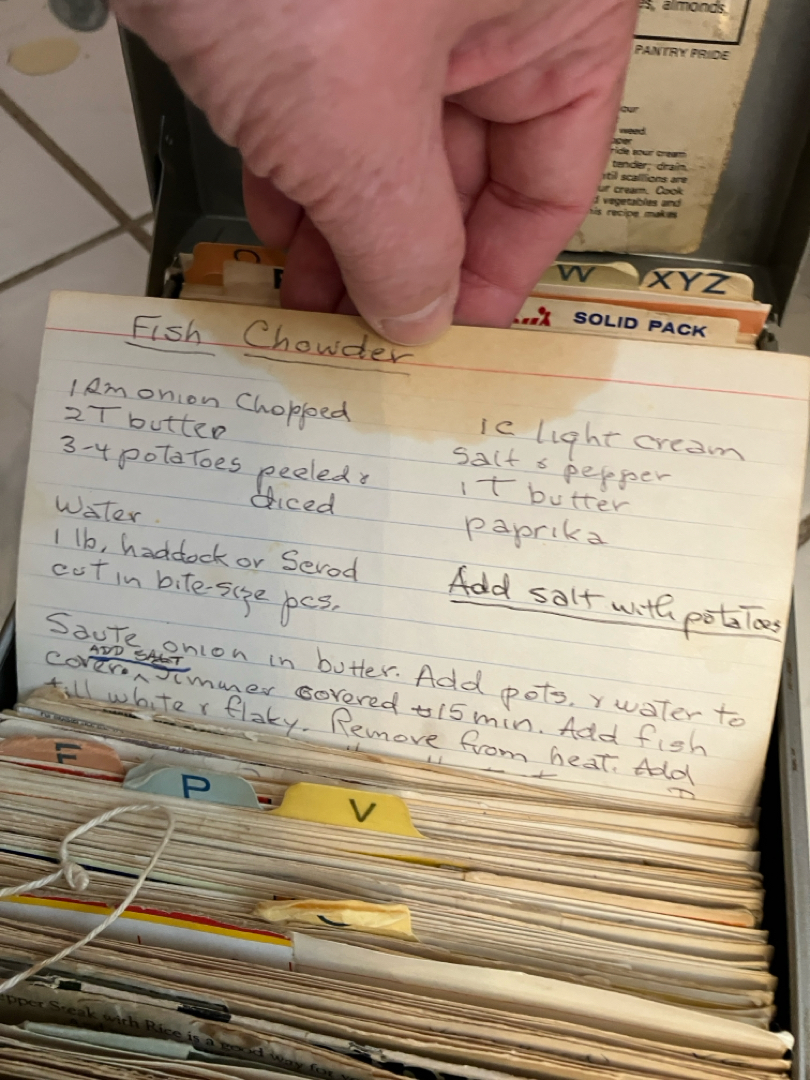 s, almonds.
PANTRY PRIDE
our
weed.
per
ride sour cream
tender; drain.
til scallions are
ur cream. Cook
d vegetables and
his recipe makes
W
XYZ
SOLID PACK
Fish Chowder
1 onion Chopped
2T butter
3-4 potatoes peeled &
diced
Water
1 lb. haddock or Scrod
cut in bite-size pcs.
1C light cream
Salt & pepper
1T butter
paprika
Add salt with potatoes
Saute onion in butter. Add pots. & water to
ADD SALT
cover. ^ Simmer covered 15 min. Add fish
till white & flaky. Remove from heat. Add
F
P
V
pper Steak with Rice is a good way for